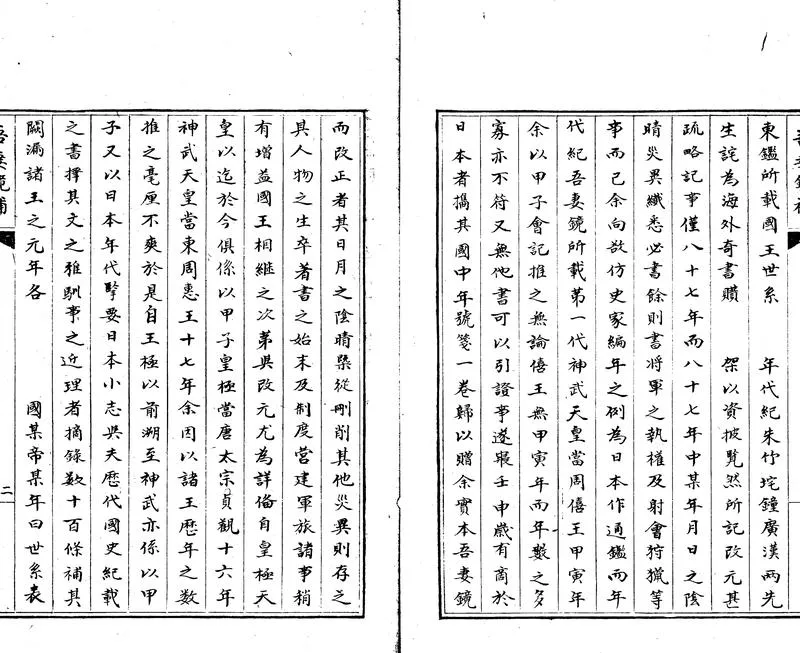 東鑑所載國王世系 年代紀朱竹垞鐘廣漢兩先
生詫為海外奇書購 架以資披覽然所記改元甚
疏略記事僅八十七年而八十七年中某年月日之陰
晴災異纖悉必書餘則書將軍之執權及射會狩獵等
事而已余向欲仿史家編年之例為日本作通鑑而年
代紀吾妻鏡所載第一代神武天皇當周僖王甲寅年
余以甲子會記推之無論僖王無甲寅年而年數之多
寡亦不符又無他書可以引證事遂寢壬申歲有商於
日本者攜其國中年號箋一卷歸以贈余實本吾妻鏡
而改正者其日月之陰晴槩從刪削其他災異則存之
具人物之生卒著書之始末及制度營建軍旅諸事稍
有增益國王相繼之次第與改元尤為詳偹自皇極天
皇以迄於今俱係以甲子皇極當唐太宗貞觀十六年
神武天皇當東周惠王十七年余因以諸王歷年之數
推之毫厘不爽於是自王極以前溯至神武亦係以甲
子又以日本年代擥要日本小志與夫歷代國史紀載
之書擇其文之雅馴事之近理者摘錄數十百條補其
闕漏諸王之元年各 國某帝某年曰世系表
吾妻鏡補
二